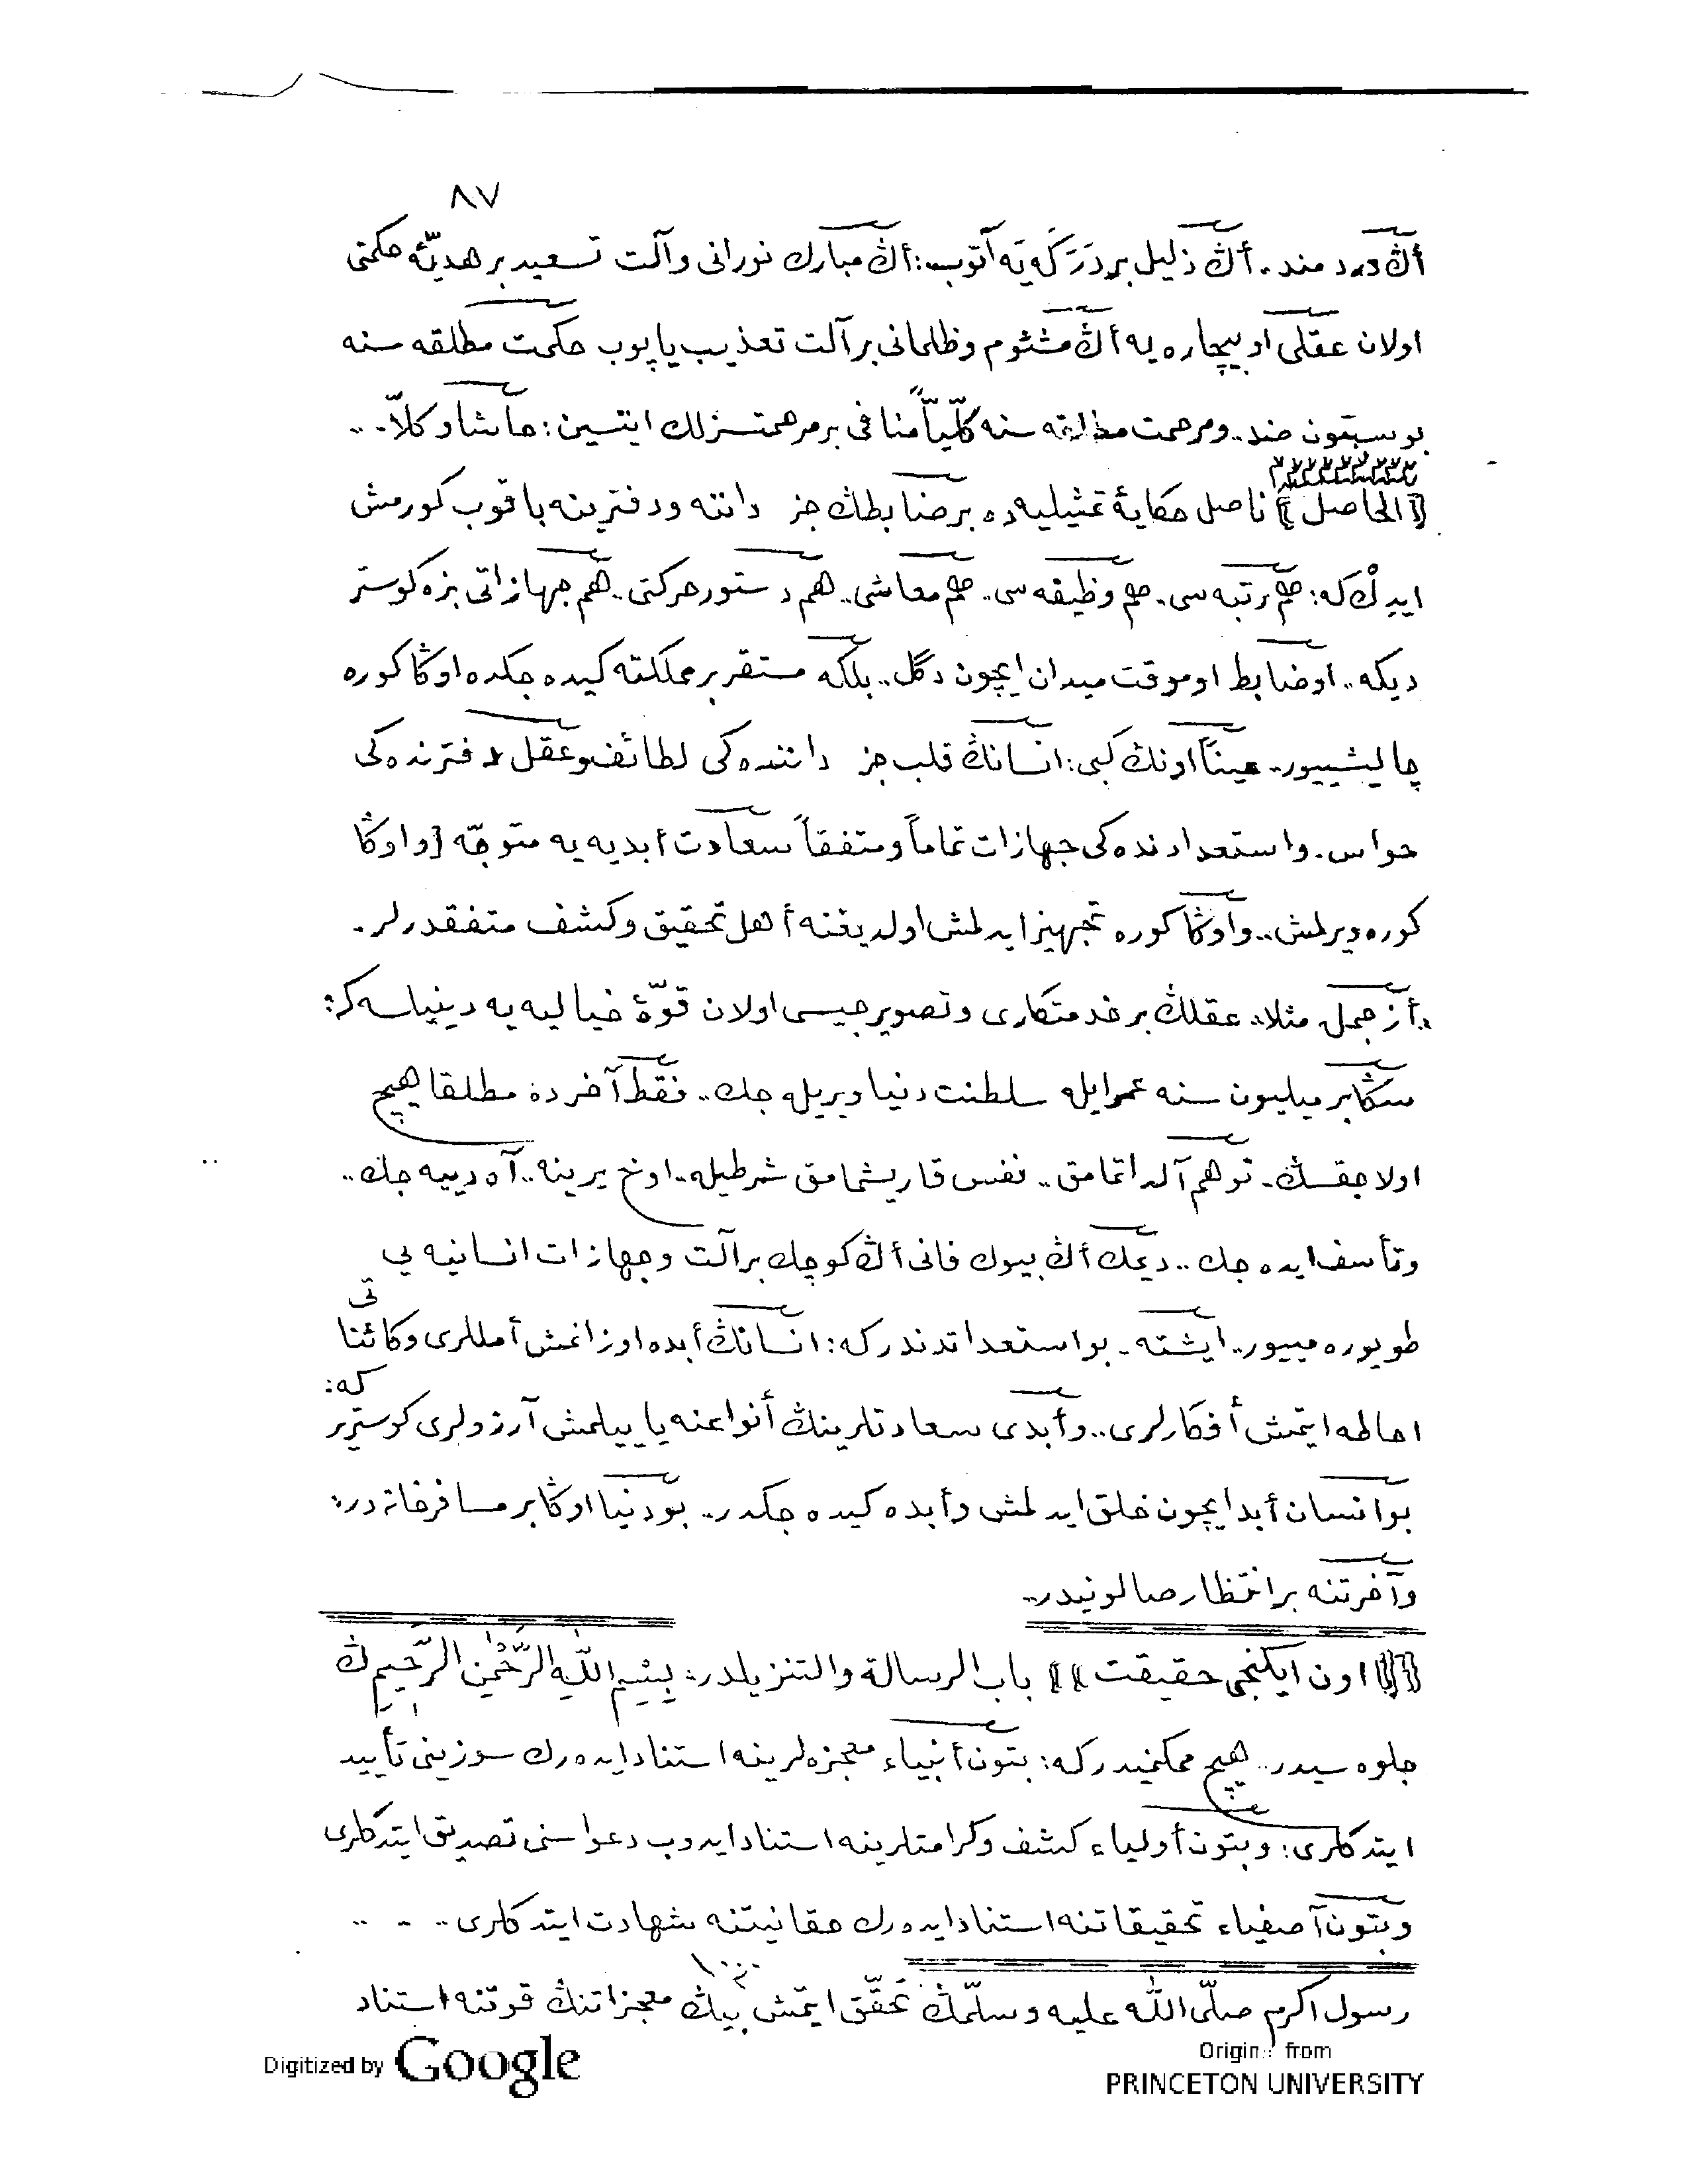 ٨٧
أڭ دردمند. أڭ ذليل بر دَرَكَه يَه آتوب: أڭ مبارك نورانى وآلت تسعيد بر هديّۀ حكمتى
اولان عقلى او بيچاره يه أڭ مشئوم وظلمانى بر آلت تعذيب ياپوب حكمت مطلقه سنه
بوسبتون ضد.. ومرحمت مطلقه سنه كلّيّاً منافى بر مرحمتسزلك ايتسين: حاشا وكلاّ. ..
⟦الحاصل⟧ ناصل حكايۀ تمثيليه ده بر ضابطڭ جز دانته ودفترينه باقوب كورمش
ايدِكْ كه: هم رتبه سى. هم وظيفه سى.. هم معاشى.. هم دستور حركتى.. هم جهازاتى بزه كوستر
ديكه.. او ضابط او موقت ميدان ايچون دگل.. بلكه مستقر بر مملكته كيده جكده اوڭا كوره
چاليشييور.. عيناً اونڭ كبى: انسانڭ قلب جز داننده كى لطائف وعقل دفترنده كى
حواس. واستعدادنده كى جهازات تماماً ومتفقاً سعادت أبديه يه متوجّه [واوڭا
كوره ويرلمش.. واوڭا كوره تجهيز ايدلمش اولديغنه أهل تحقيق وكشف متفقدرلر.
أزجمله مثلا.. عقلڭ بر خدمتكارى وتصويرجيسى اولان قوّۀ خياليه يه دينيلسه كه:
سڭا بر ميليون سنه عمر ايله سلطنت دنيا ويريله جك.. فقط آخرده مطلقا هيچ
اولاجقسڭ. توهم آلداتمامق.. نفس قاريشمامق شرطيله.. اوخ يرينه.. آه دييه جك..
وتأسف ايده جك.. ديمك أڭ بيوك فانى أڭ كوچك بر آلت وجهازات انسانيه يى
طويوره مييور.. ايشته. بو استعداتدندركه: انسانڭ أبده اوزانمش أمللرى وكائناتى
احاطه ايتمش أفكارلرى.. وأبدى سعادتلرينڭ أنواعنه ياييلمش آرزولرى كوسترير كه:
بو انسان أبد ايچون خلق ايدلمش وأبده كيده جكدر.. بو دنيا اوڭا بر مسافرخانه در:
وآخرتنه بر انتظار صالونيدر..
⟦اون ايكنجى حقيقت⟧ باب الرسالة والتنزيلدر: بِسْمِ اللّٰهِ الرَّحْمٰنِ الرَّحِيمِ ڭ
جلوه سيدر.. هيچ ممكنميدركه: بتون أنبياء معجزه لرينه استناد ايده رك سوزينى تأييد
ايتدكلرى: وبتون أولياء كشف وكرامتلرينه استناد ايدوب دعواسنى تصديق ايتدكلرى
وبتون آصفياء تحقيقاتنه استناد ايده رك حقانيتنه شهادت ايتدكلرى.. .. ..
١٠٠٠
رسول اكرم صلّى اللّٰه عليه وسلّمڭ تحقّق ايتمش بيڭ معجزاتنڭ قوتنه استناد
Digitized by Google
Origin from
PRINCETON UNIVERSITY